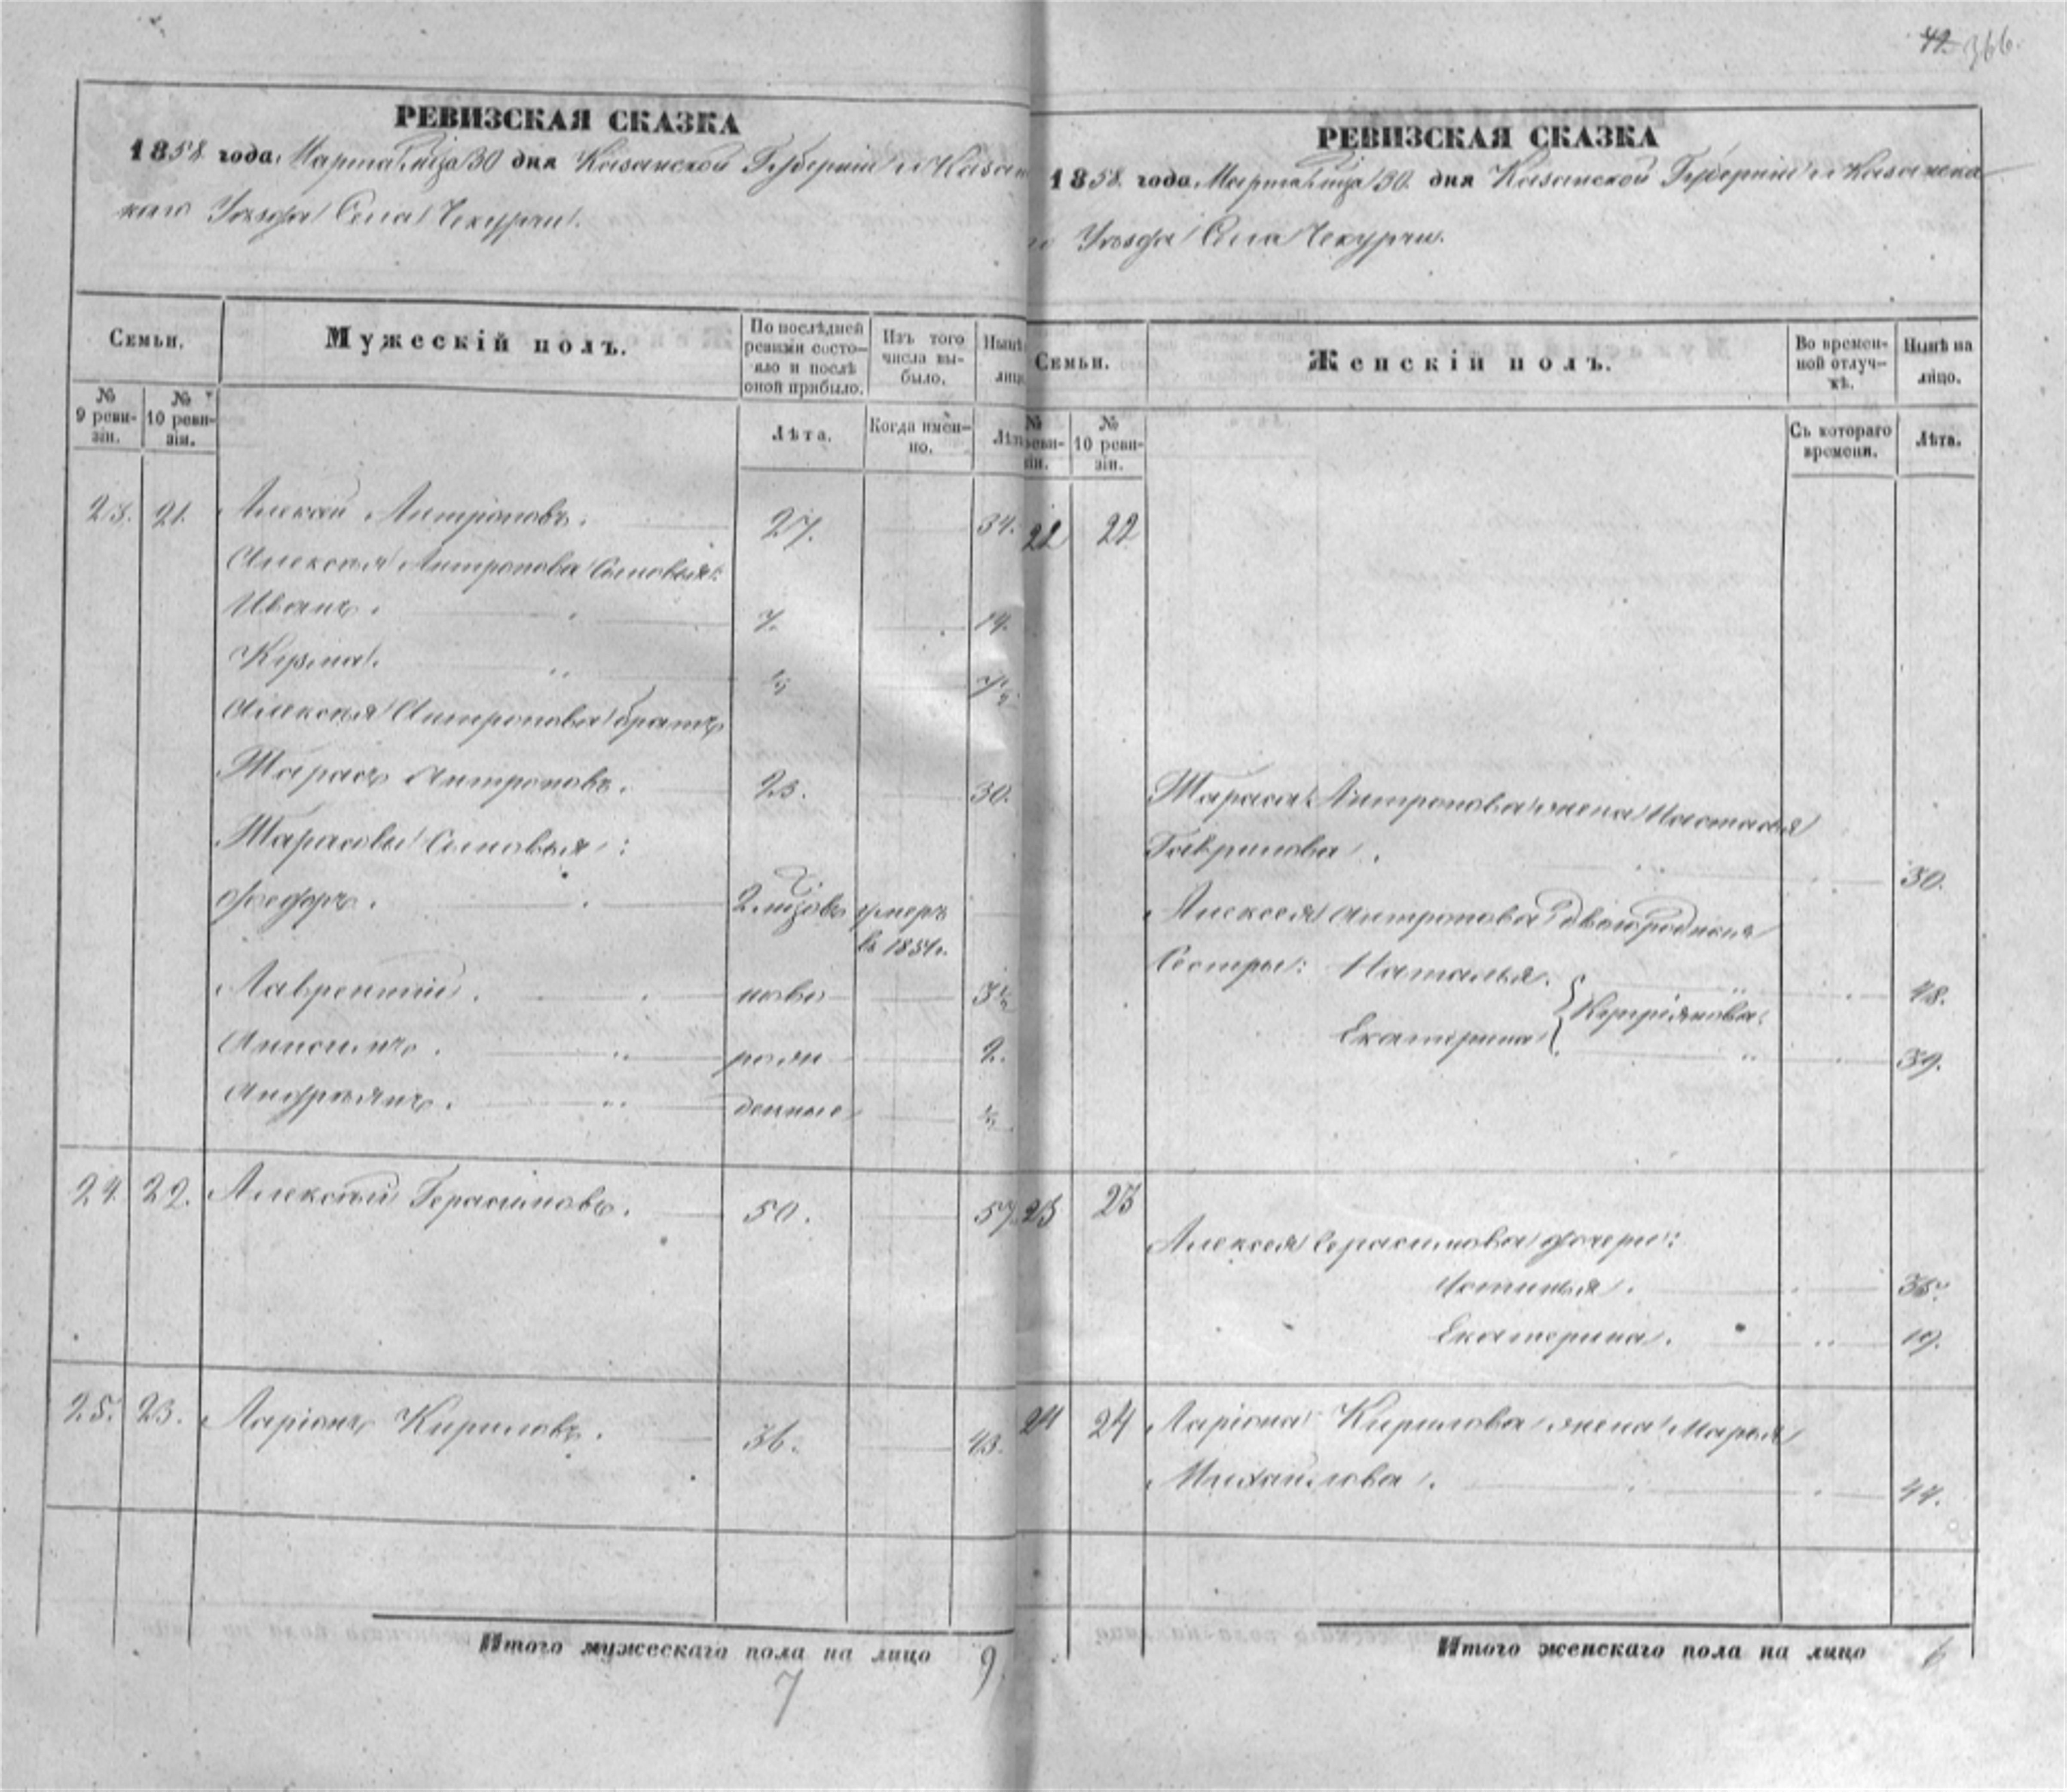 42. 366.
РЕВИЗСКАЯ СКАЗКА
1858 года, Марта мца 30 дня Казанской Губерніи и Казанс
каго Уѣзда Села Чекурчи.
Семьи.
Мужескій полъ.
По послѣдней ревизіи состояло и послѣ оной прибыло.
Изъ того числа выбыло.
Нынѣ лицо
№ 9 ревизіи.
№ 10 ревизіи.
Лѣта.
Когда именно.
Лѣт
23. 21. Алексѣй Антроповъ. 27. 34.
Алексѣя Антропова сыновья:
Иванъ. 7. 14.
Кузма. ½ 7½
Алексѣя Антропова братъ
Тарасъ Антроповъ. 23. 30.
Тарасовы сыновья:
Федоръ. 2 мцовъ умеръ
въ 1851г.
Лаврентій. ново 3½
Анисимъ. рож 2.
Андреянъ. денные ½
24. 22. Алексѣй Герасимовъ. 50. 57.
25. 23. Ларіонъ Кириловъ. 36. 43.
Итого мужескаго пола на лицо 9.
7
РЕВИЗСКАЯ СКАЗКА
1858 года, Марта мца 30 дня Казанской Губерніи и Казанска
го Уѣзда Села Чекурчи.
Семьи.
Женскій полъ.
Во временной отлучкѣ.
Нынѣ на лицо.
№ реви- зіи.
№ 10 ревизіи.
Съ котораго времени.
Лѣта.
22 22
Тараса Антропова жена Настасья
Гаврилова. 30.
Алексея Антропова двоюродныя
Сестры: Наталья. 48.
Купріянова
Екатерина 39.
23 23
Алексея Герасимова дочери:
Устинья. 35.
Екатерина. 19.
24 24 Ларіона Кирилова жена Марья
Михайлова. 44.
Итого женскаго пола на лицо 6